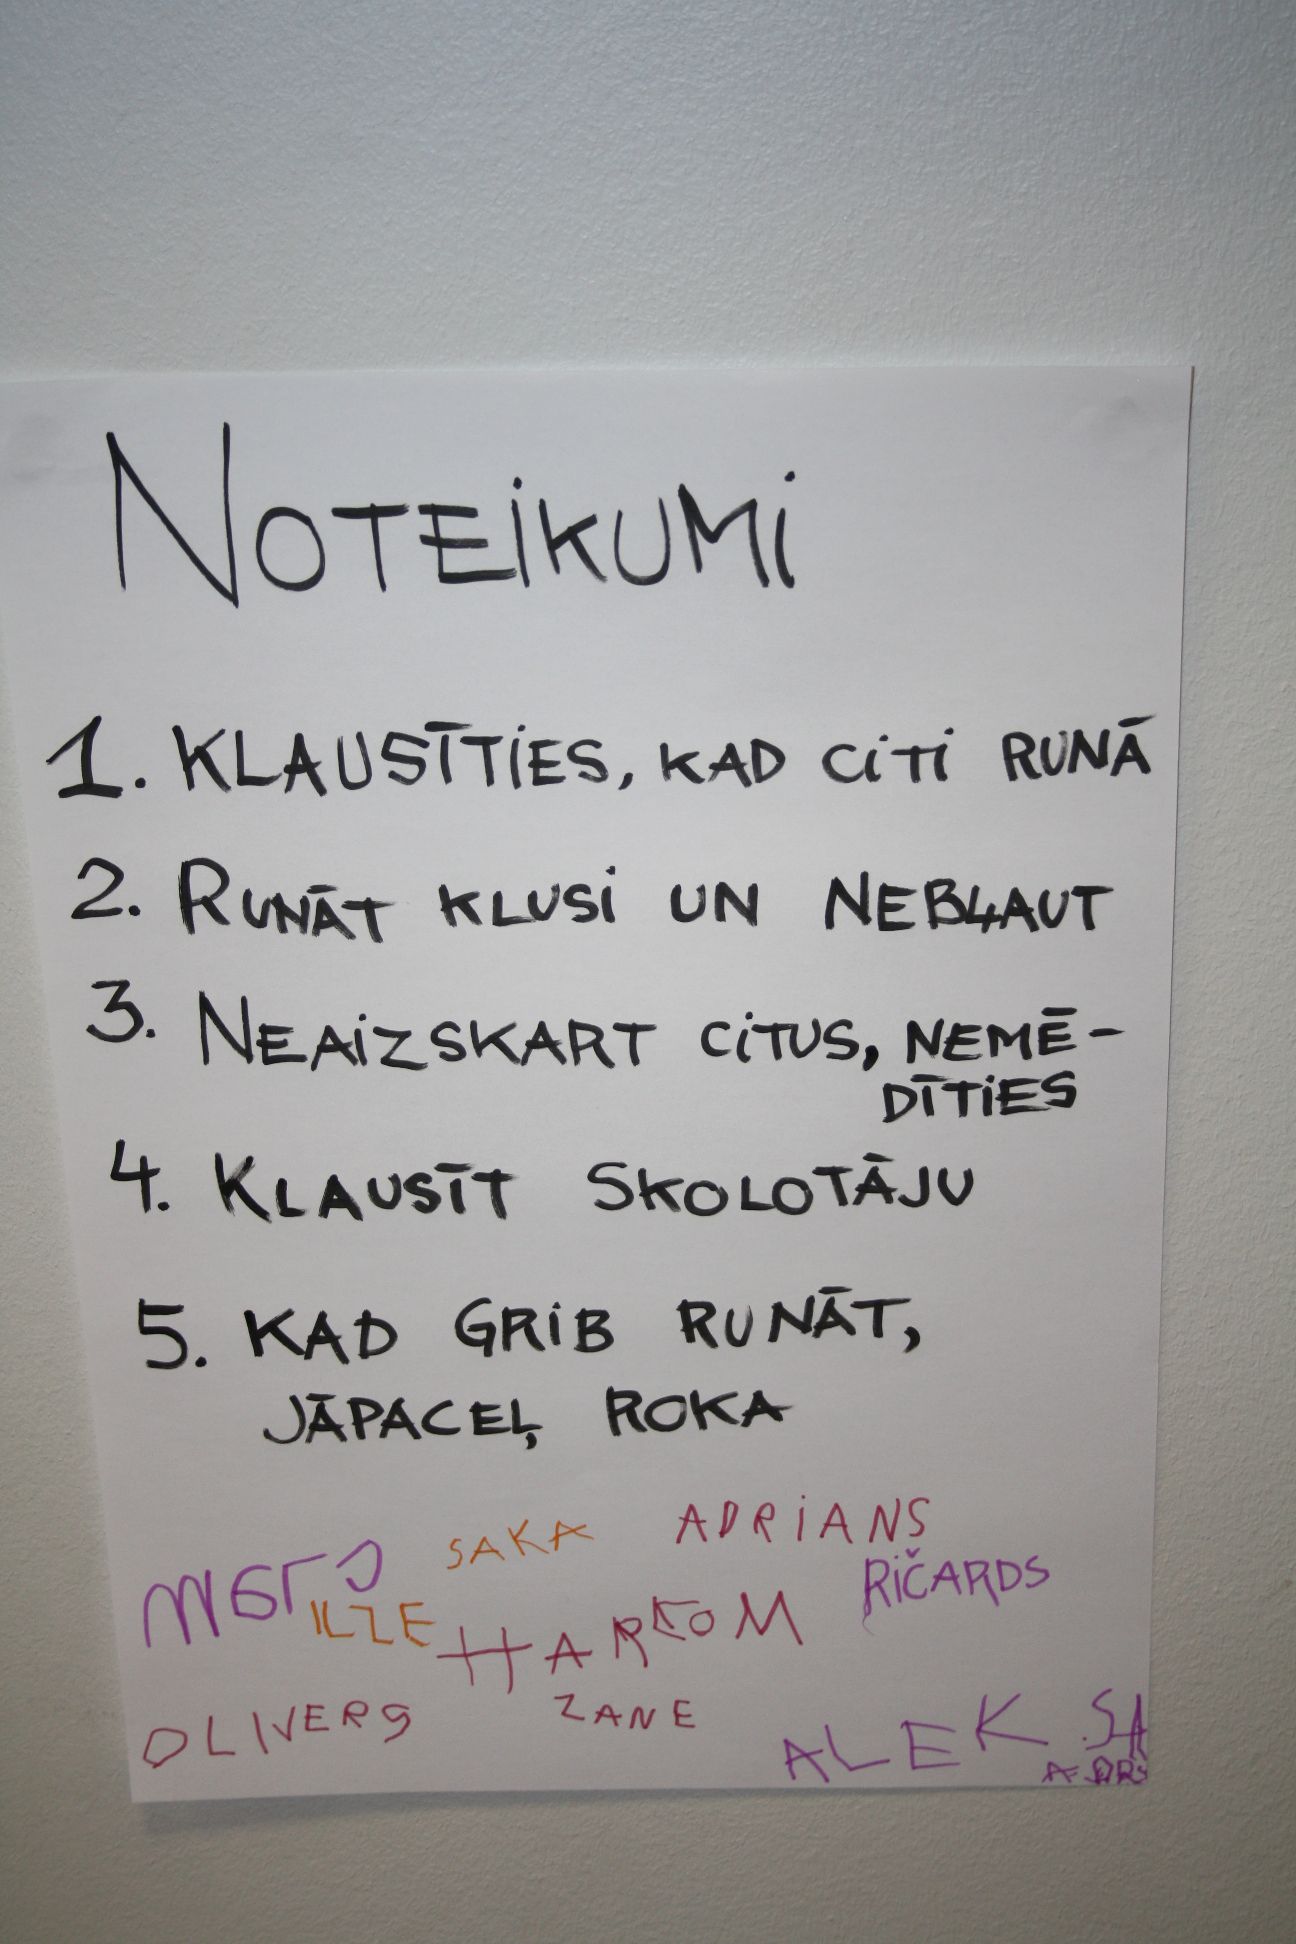 NOTEIKUMI
1. KLAUSĪTIES, KAD CITI RUNĀ
2. RUNĀT KLUSI UN NEBĻAUT
3. NEAIZSKART CITUS, NEMĒ-
DĪTIES
4. KLAUSĪT SKOLOTĀJU
5. KAD GRIB RUNĀT,
JĀPACEĻ ROKA
SAKA ADRIANS
RIČARDS
ILZE
OLIVERS ZANE
ALEK SA